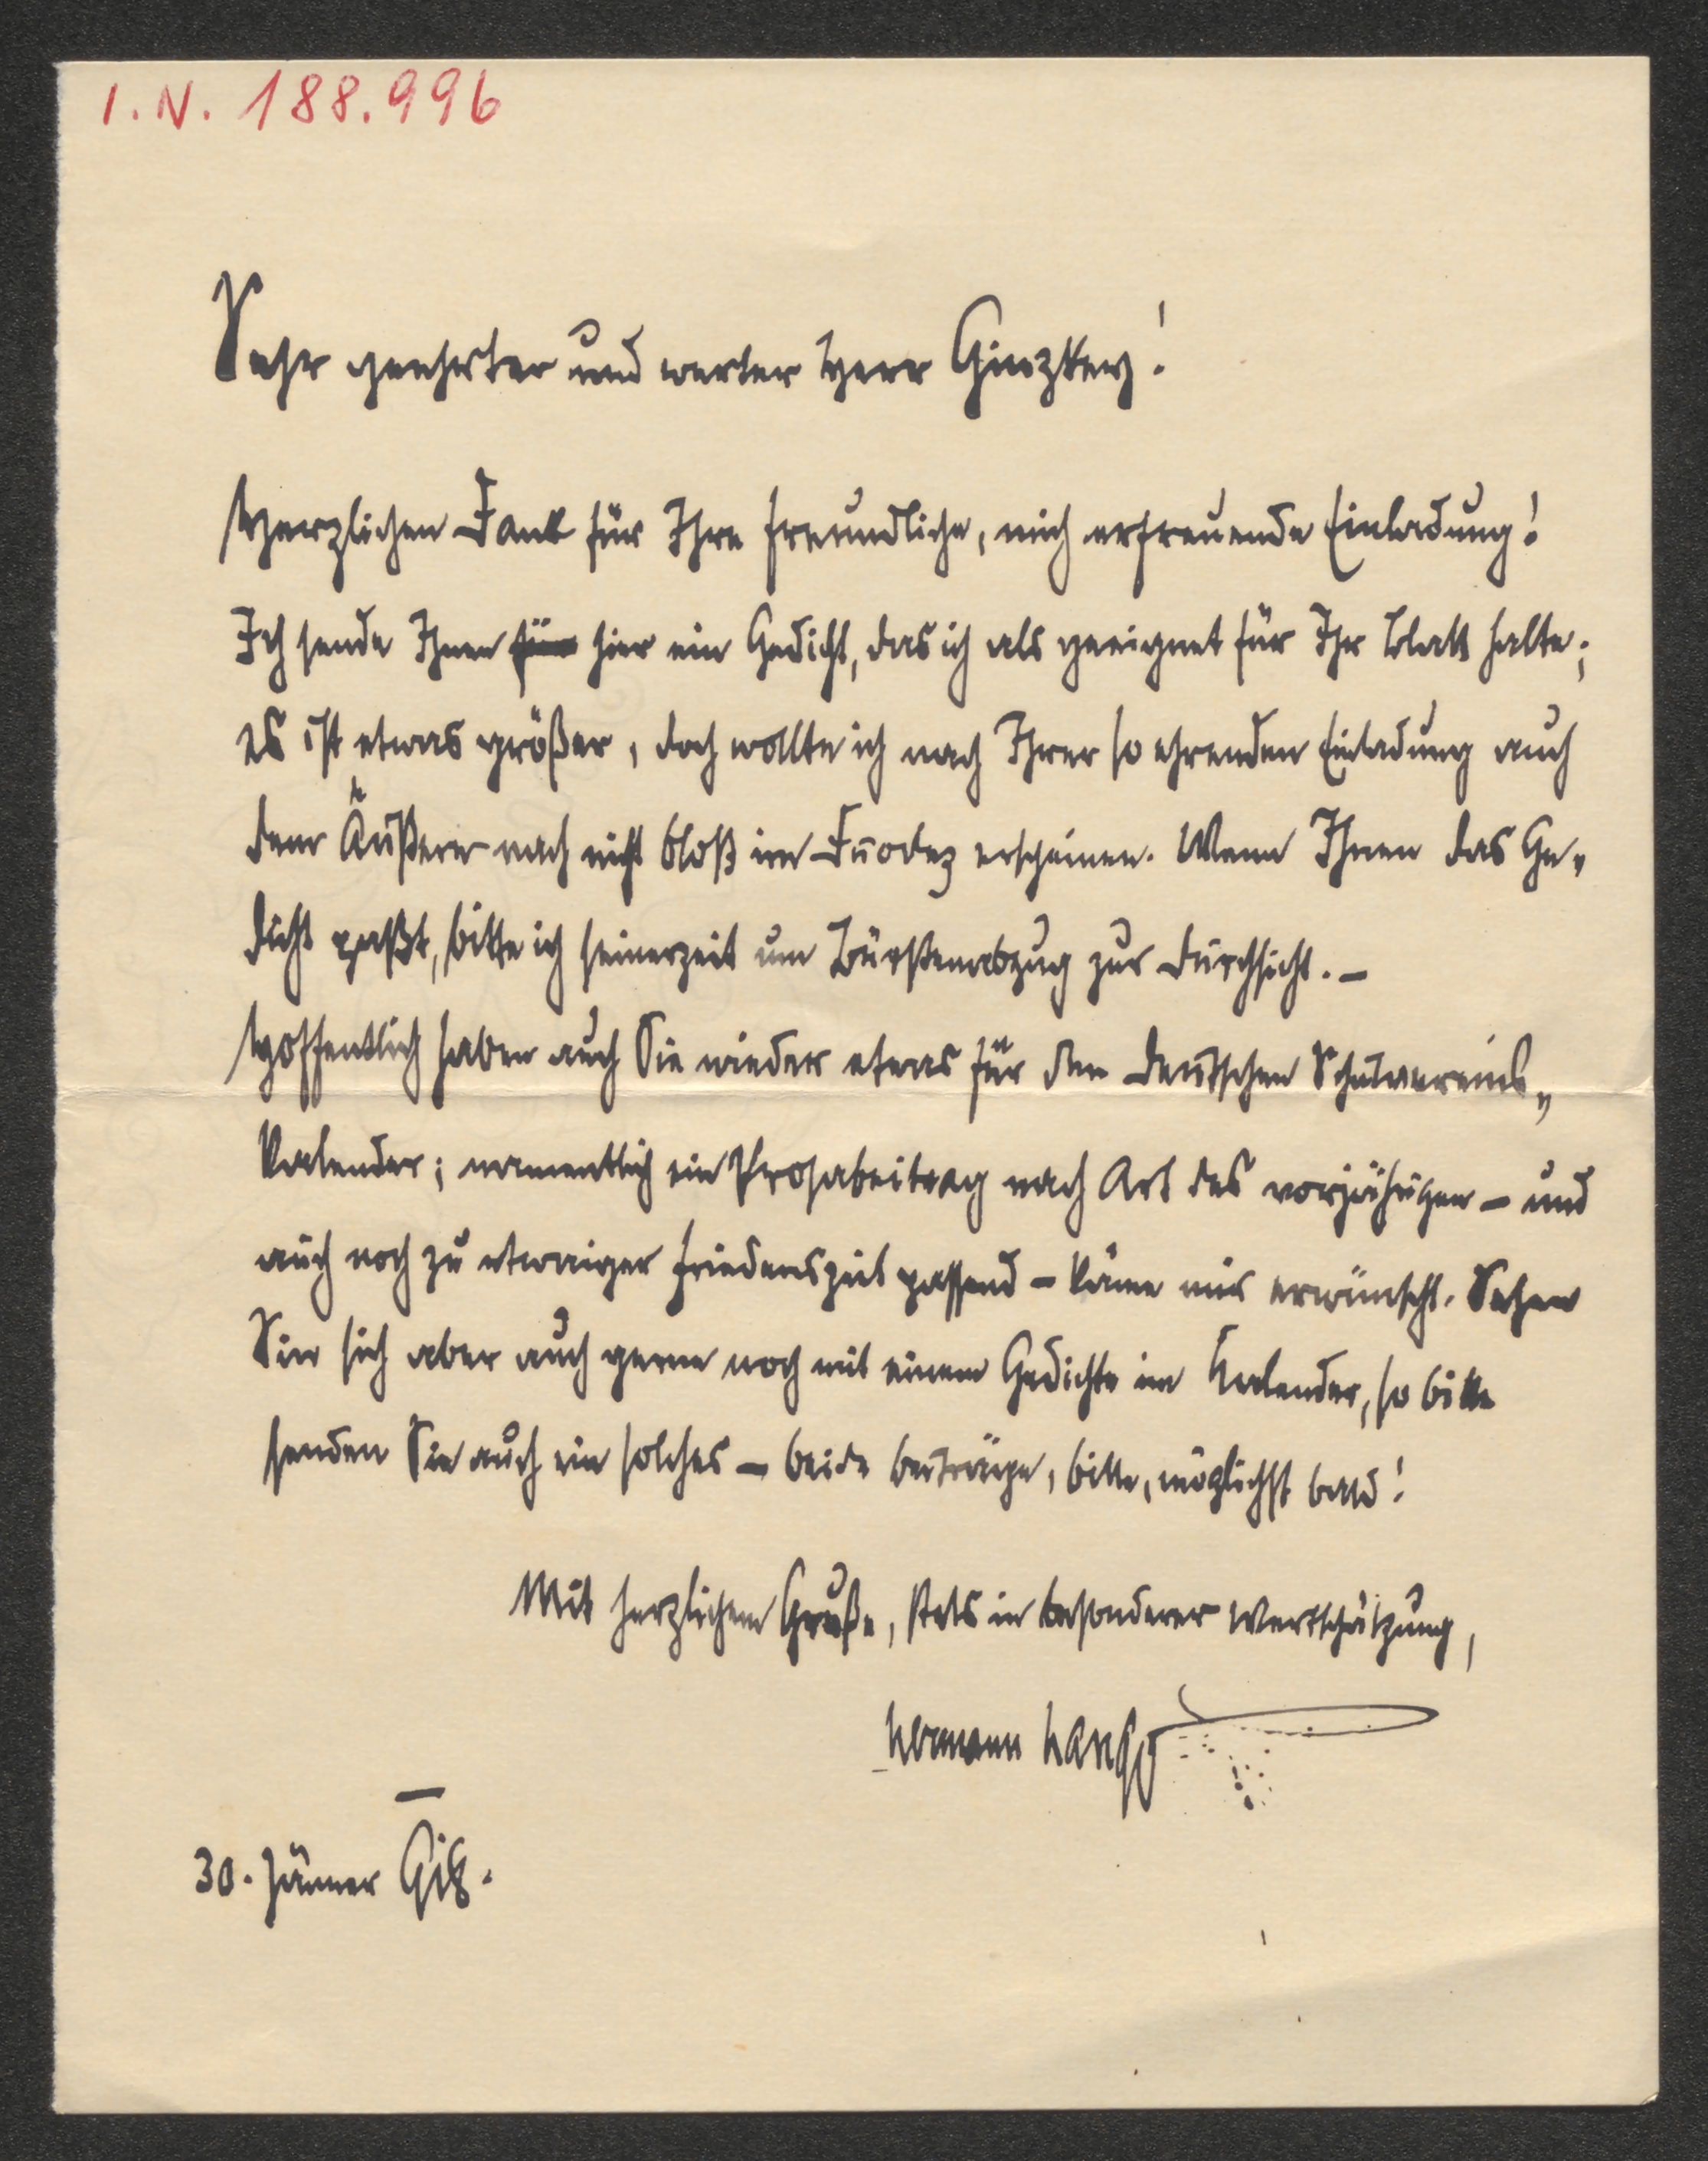 I. N. 188.996
Sehr geehrter und werter Herr Ginzkey!
Herzlichen Dank für Ihre freundliche, mich erfreuende Einladung!
Ich sende Ihnen für hier ein Gedicht, das ich als geeignet für Ihr Blatt halte;
es ist etwas größer, doch wollte ich nach Ihrer so ehrenden Einladung auch
dem Äußern nach nicht bloß im Duodez erscheinen. Wenn Ihnen das Ge-
dicht paßt, bitte ich seinerzeit um Bürstenabzug zur Durchsicht. –
Hoffentlich haben auch Sie wieder etwas für den Deutschen Schulvereins-
kalender; namentlich ein Prosabeitrag nach Art des vorjährigen – und
auch noch zu etwaiger Friedenszeit passend – käme mir erwünscht. Sehen
Sie sich aber auch gerne noch mit einem Gedichte im Kalender, so bitte
senden Sie auch ein solches – beide Beiträge, bitte, möglichst bald!
Mit herzlichem Gruße, stets in besonderer Wertschätzung,
Hermann
30. Jänner